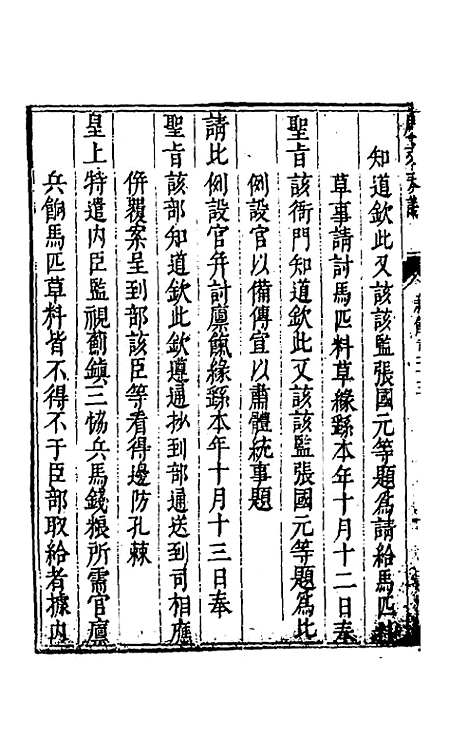 知道欽此又該該監張國元等題爲請給馬匹料
草事請討馬匹料草緣繇本年十月十二日奉
聖旨該衙門知道欽此又該該監張國元等題爲比
例設官以備傳宣以肅體統事題
請比例設官幷討廪餼緣繇本年十月十三日奉
聖旨該部知道欽此欽遵通抄到部通送到司相應
併覆案呈到部該臣等看得邊防孔棘
皇上特遣内臣監視薊鎮三協兵馬錢粮所需官廪
兵餉馬匹草料皆不得不于臣部取給者據内